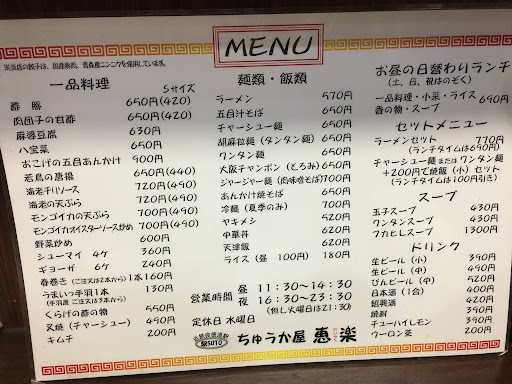 MENU
※当店の餃子は、国産豚肉、青森産ニンニクを使用しています。
一品料理 Sサイズ
酢豚 650円(420)
肉団子の甘酢 650円(420)
麻婆豆腐 630円
八宝菜 650円(420)
おこげの五目あんかけ 900円
若鳥の唐揚 650円(440)
海老チリソース 720円(490)
海老の天ぷら 720円(490)
モンゴイカの天ぷら 700円(490)
モンゴイカオイスターソース炒め 700円(490)
野菜炒め 600円
シューマイ 4ケ 360円
ギョーザ 6ケ 240円
春巻き(ご注文は2本から)1本 160円
うまいっ手羽1本 130円
(手羽先 ご注文は3本から)
くらげの酢の物 550円
叉焼(チャーシュー) 450円
キムチ 200円
麺類・飯類
ラーメン 570円
五目汁そば 650円
チャーシュー麺 650円
胡麻拉麺(タンタン麺) 650円
ワンタン麺 650円
大阪チャンポン(とろみ) 650円
ジャージャー麺(肉味噌そば) 700円
あんかけ焼そば 650円
冷麺(夏季のみ) 700円
ヤキメシ 520円
中華丼 620円
天津飯 620円
ライス(昼 100円) 180円
営業時間 昼 11:30~14:30
夜 16:30~23:30
(但し火曜日は21:30)
定休日 水曜日
ちゅうか屋 惠楽
お昼の日替わりランチ
(土、日、祝はのぞく)
一品料理・小菜・ライス
香の物・スープ 690円
セットメニュー
ラーメンセット 770円
(ランチタイムは690円)
チャーシュー麺またはワンタン麺
+200円で焼飯(小)セット
(ランチタイムは100円引き)
スープ
玉子スープ 430円
ワンタンスープ 430円
フカヒレスープ 300円
ドリンク
生ビール(小) 390円
生ビール(中) 490円
びんビール(中) 520円
日本酒(1合) 400円
紹興酒 420円
焼酎 390円
チューハイレモン 390円
ウーロン茶 200円